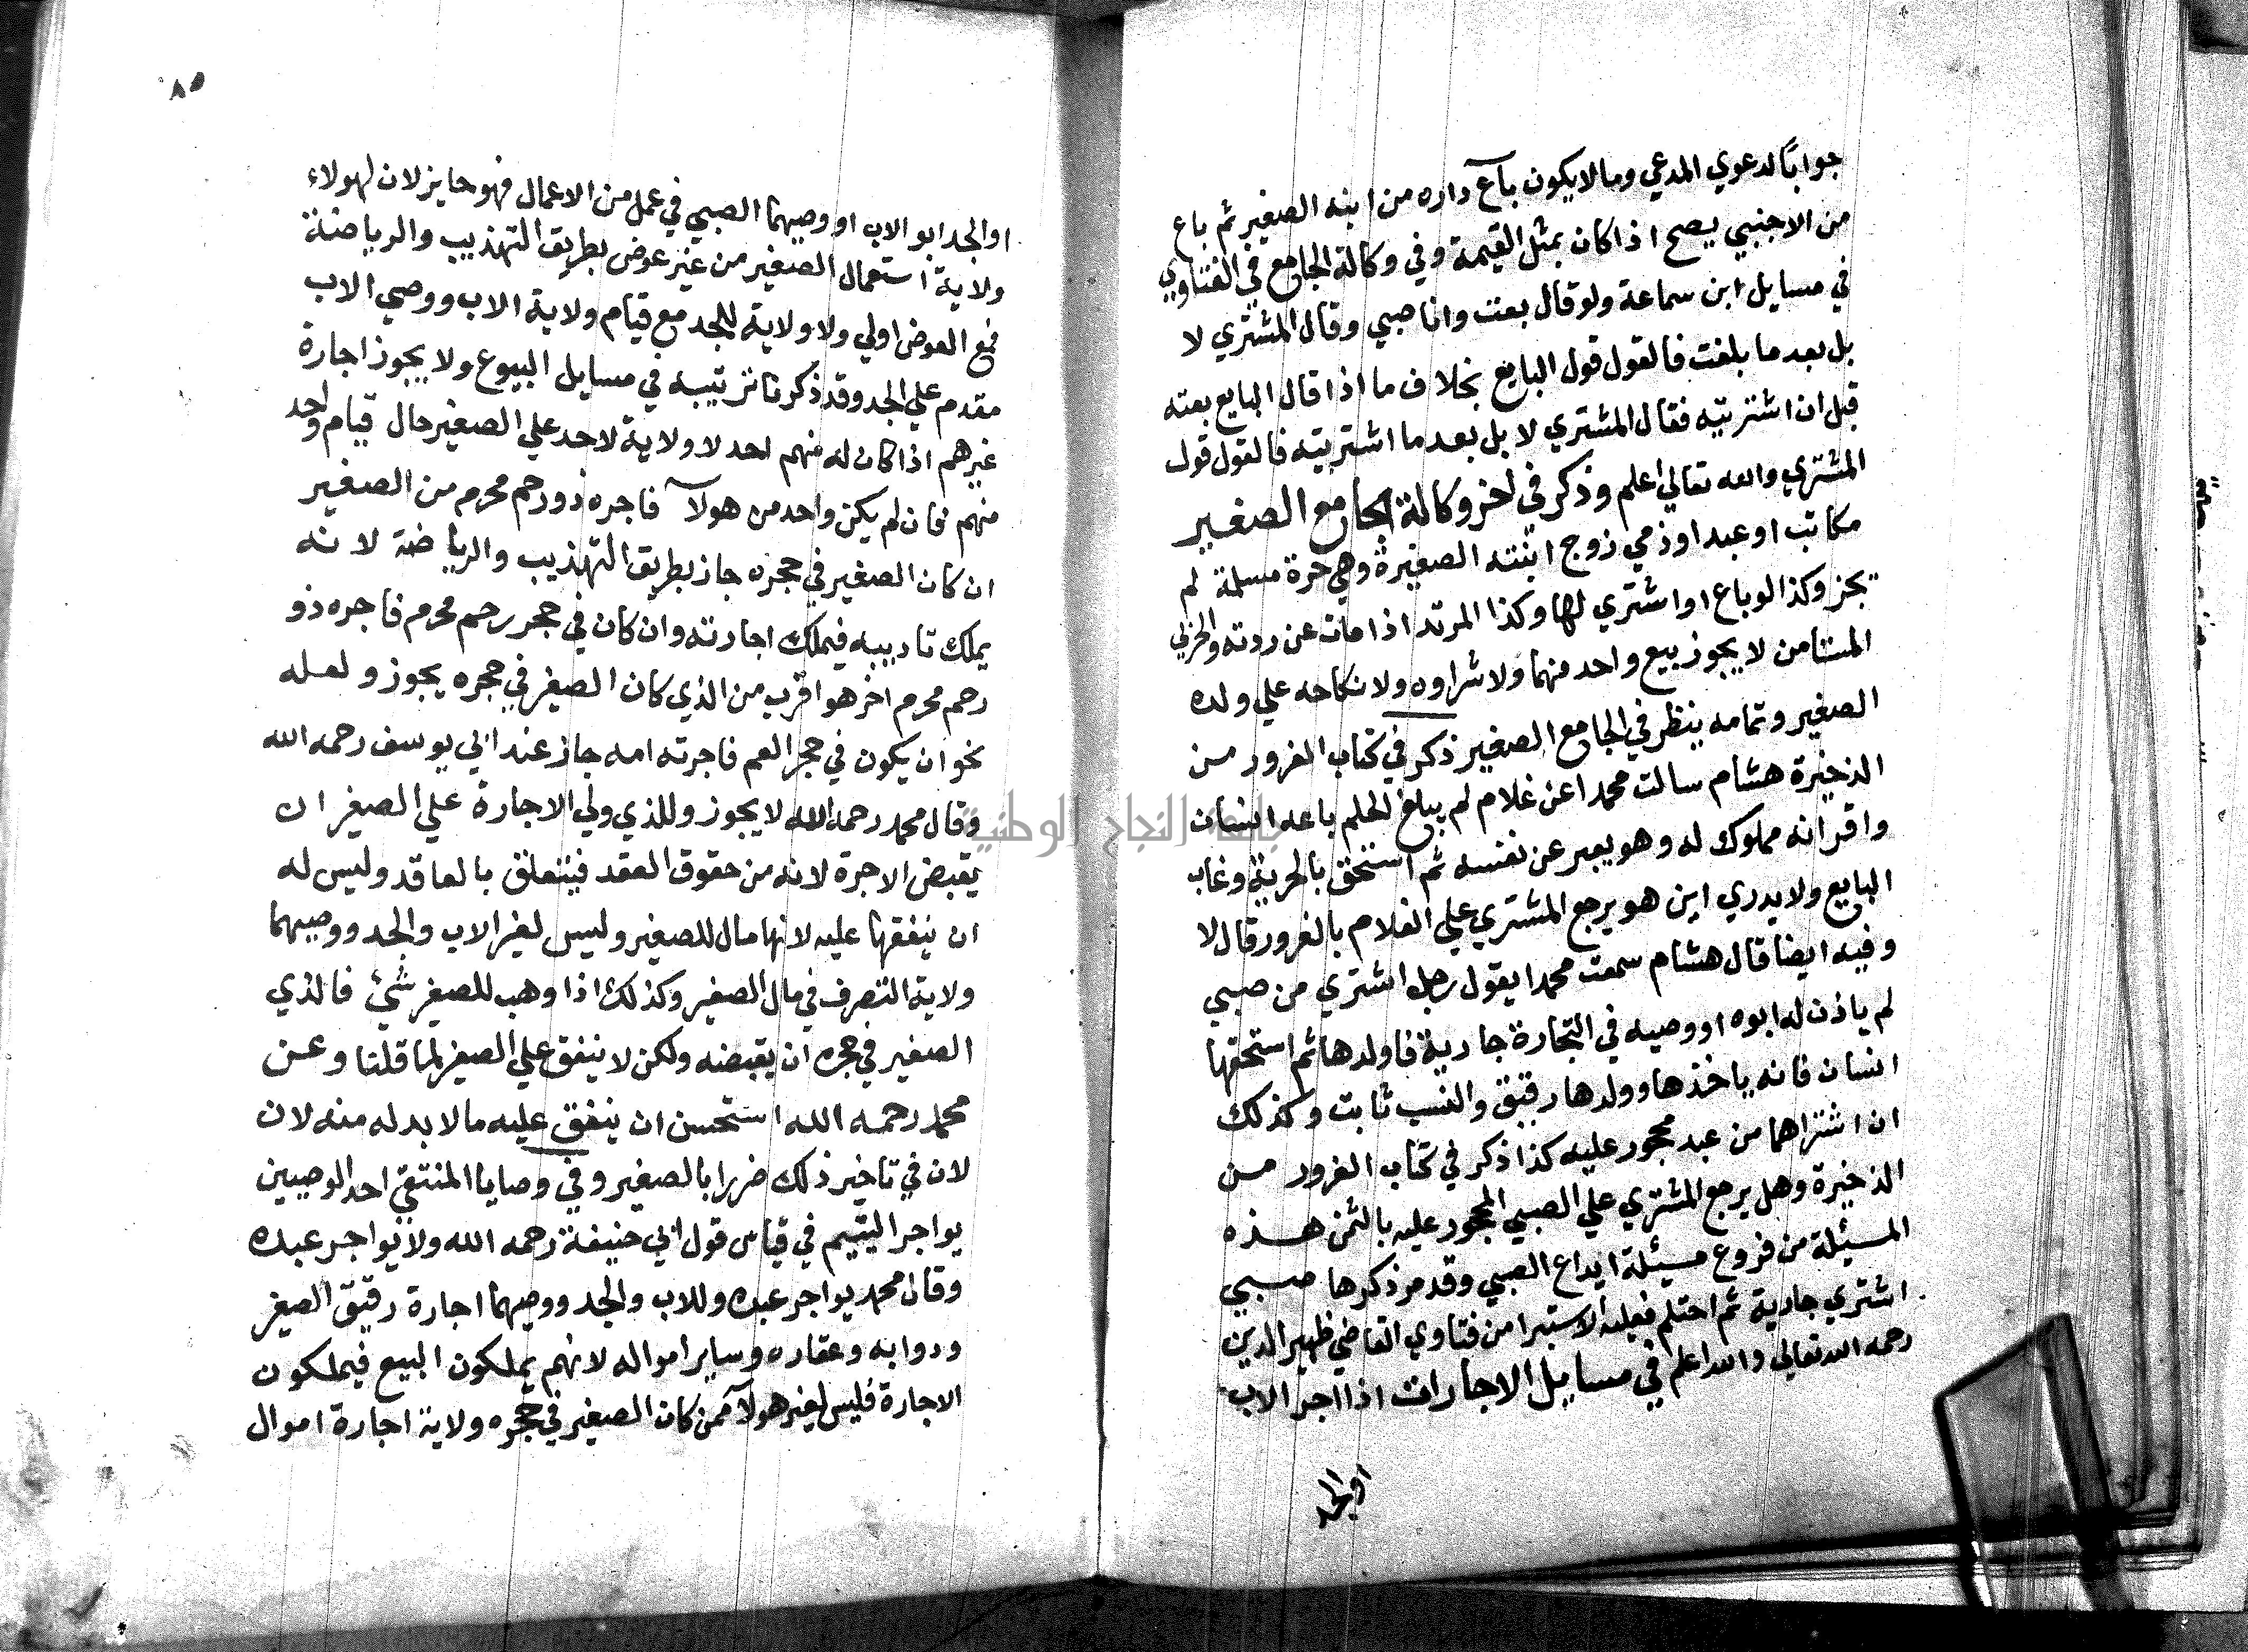 جوابًا لدعوي المدعي ومالا يكون باع داره من ابنه الصغير ثم باع
من الاجنبي يصح اذا كان بمثل القيمة وفي وكالة الجامع في الفتاوي
في مسايل ابن سماعة ولو قال بعت وانا صبي وقال المشتري لا
بل بعد ما بلغت فالقول قول البايع بخلاف ما اذا قال البايع بعته
قبل ان اشتريته فقال المشتري لا بل بعد ما اشتريته فالقول قول
المشتري والله تعالي اعلم وذكر في اخر وكالة الجامع الصغير
مكاتب او عبد او ذمي زوج ابنته الصغيرة وهي حرة مسلمة لم
يجز وكذا لو باع او اشتري لها وكذا المرتد اذا مات عن ردته والحربي
المستامن لا يجوز بيع واحد منهما ولا شراوه ولا نكاحه علي ولده
الصغير وتمامه ينظر في الجامع الصغير ذكر في كتاب الغرور من
الذخيرة هشام سالت محمدا عن غلام لم يبلغ الحلم باعه انسان
واقر انه مملوك له وهو يعبر عن نفسه ثم استحق بالحرية وغاب
البايع ولا يدري اين هو يرجع المشتري علي الغلام بالغرور قال لا
وفيه ايضا قال هشام سمعت محمدا يقول رجل اشتري من صبي
لم ياذن له ابوه او وصيه في التجارة جارية فاولدها ثم استحقها
انسان فانه ياخذها وولدها رقيق والنسب ثابت وكذلك
ان اشتراهما من عبد محجور عليه كذا ذكر في كتاب الغرور من
الذخيرة وهل يرجع المشتري علي الصبي المحجور عليه بالثمن هذه
المسئلة من فروع مسئلة ايداع الصبي وقد مر ذكرها صبي
اشتري جارية ثم احتلم فعليه الاستبرا من فتاوي القاضي ظهير الدين
رحمه الله تعالي والله اعلم في مسايل الاجارات اذا اجر الاب
اوالجد
٨٥
او الجد ابو الاب او وصيهما الصبي في عمل من الاعمال فهو جايز لان لهولاء
ولاية استعمال الصغير من غير عوض بطريق التهذيب والرياضة
فمع العوض اولي ولا ولاية للجد مع قيام ولاية الاب ووصي الاب
مقدم علي الجد وقد ذكرنا ترتيبه في مسايل البيوع ولا يجوز اجارة
غيرهم اذا كان له منهم احد لا ولاية لاحد علي الصغير حال قيام واحد
منهم فان لم يكن واحد من هولآ فاجره ذو رحم محرم من الصغير
ان كان الصغير في حجره جاز بطريق التهذيب والرياضة لانه
يملك تاديبه فيملك اجارته وان كان في حجر رحم محرم فاجره ذو
رحم محرم اخر هو اقرب من الذي كان الصغير في حجره يجوز ولعله
نحو ان يكون في حجر العم فاجرته امه جاز عند ابي يوسف رحمه الله
وقال محمد رحمه الله لا يجوز وللذي ولي الاجارة علي الصغير ان
يقبض الاجرة لانه من حقوق العقد فيتعلق بالعاقد وليس له
ان ينفقها عليه لانها مال للصغير وليس لغير الاب والجد ووصيهما
ولاية التصرف في مال الصغير وكذلك اذا وهب للصغير شئ فالذي
الصغير في حجره ان يقبضه ولكن لا ينفق علي الصغير لما قلنا وعن
محمد رحمه الله استحسن ان ينفق عليه مالا بد له منه لان
لان في تاخير ذلك ضررا بالصغير وفي وصايا المنتقي احد الوصيين
يواجر اليتيم في قياس قول ابي حنيفة رحمه الله ولا يواجر عبده
وقال محمد يواجر عبده وللاب والجد ووصيهما اجارة رقيق الصغير
ودوابه وعقاره وساير امواله لانهم يملكون البيع فيملكون
الاجارة فليس لغير هولآ ممن كان الصغير في حجره ولاية اجارة اموال
جامعة النجاح الوطنية